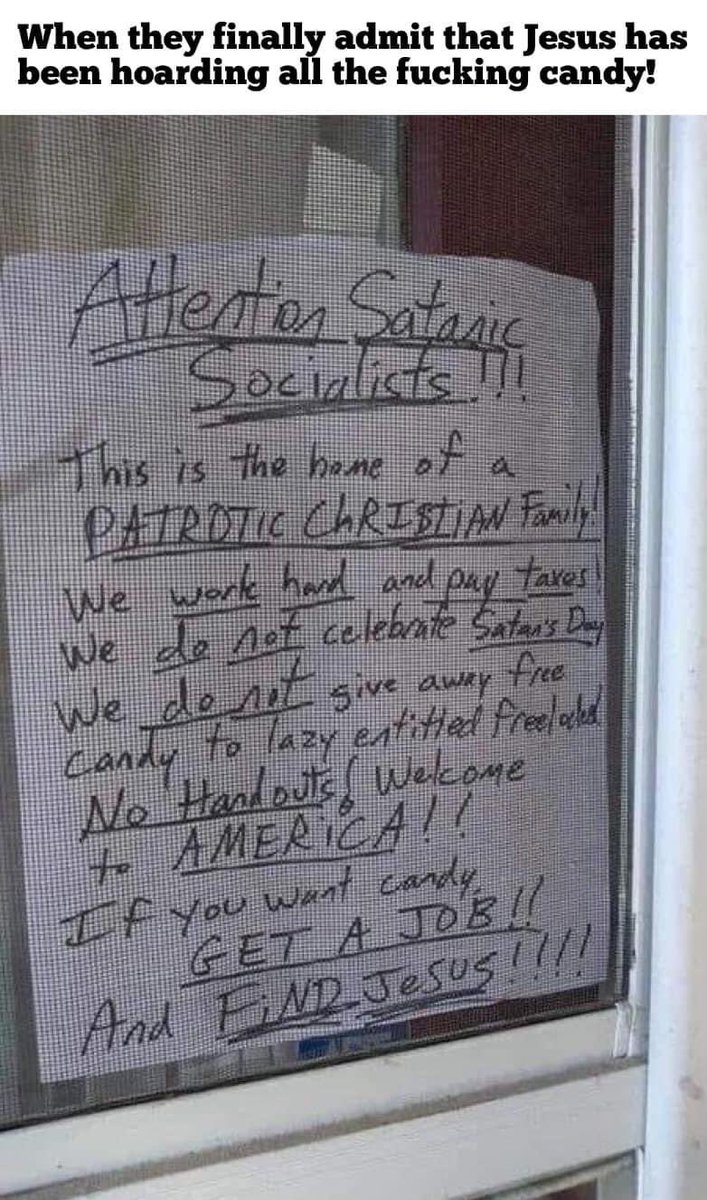 When they finally admit that Jesus has
been hoarding all the fucking candy!
Attention Satanic
Socialists!!!
This is the home of a
PATROTIC ChRISTIAN Family!
We work hard and pay taxes!
We do not celebrate Satan's Day
We do not give away free
candy to lazy entitled
No Handouts! Welcome
to AMERiCA!!
If you want candy,
GET A JOB!!
And FiND JeSUS!!!!